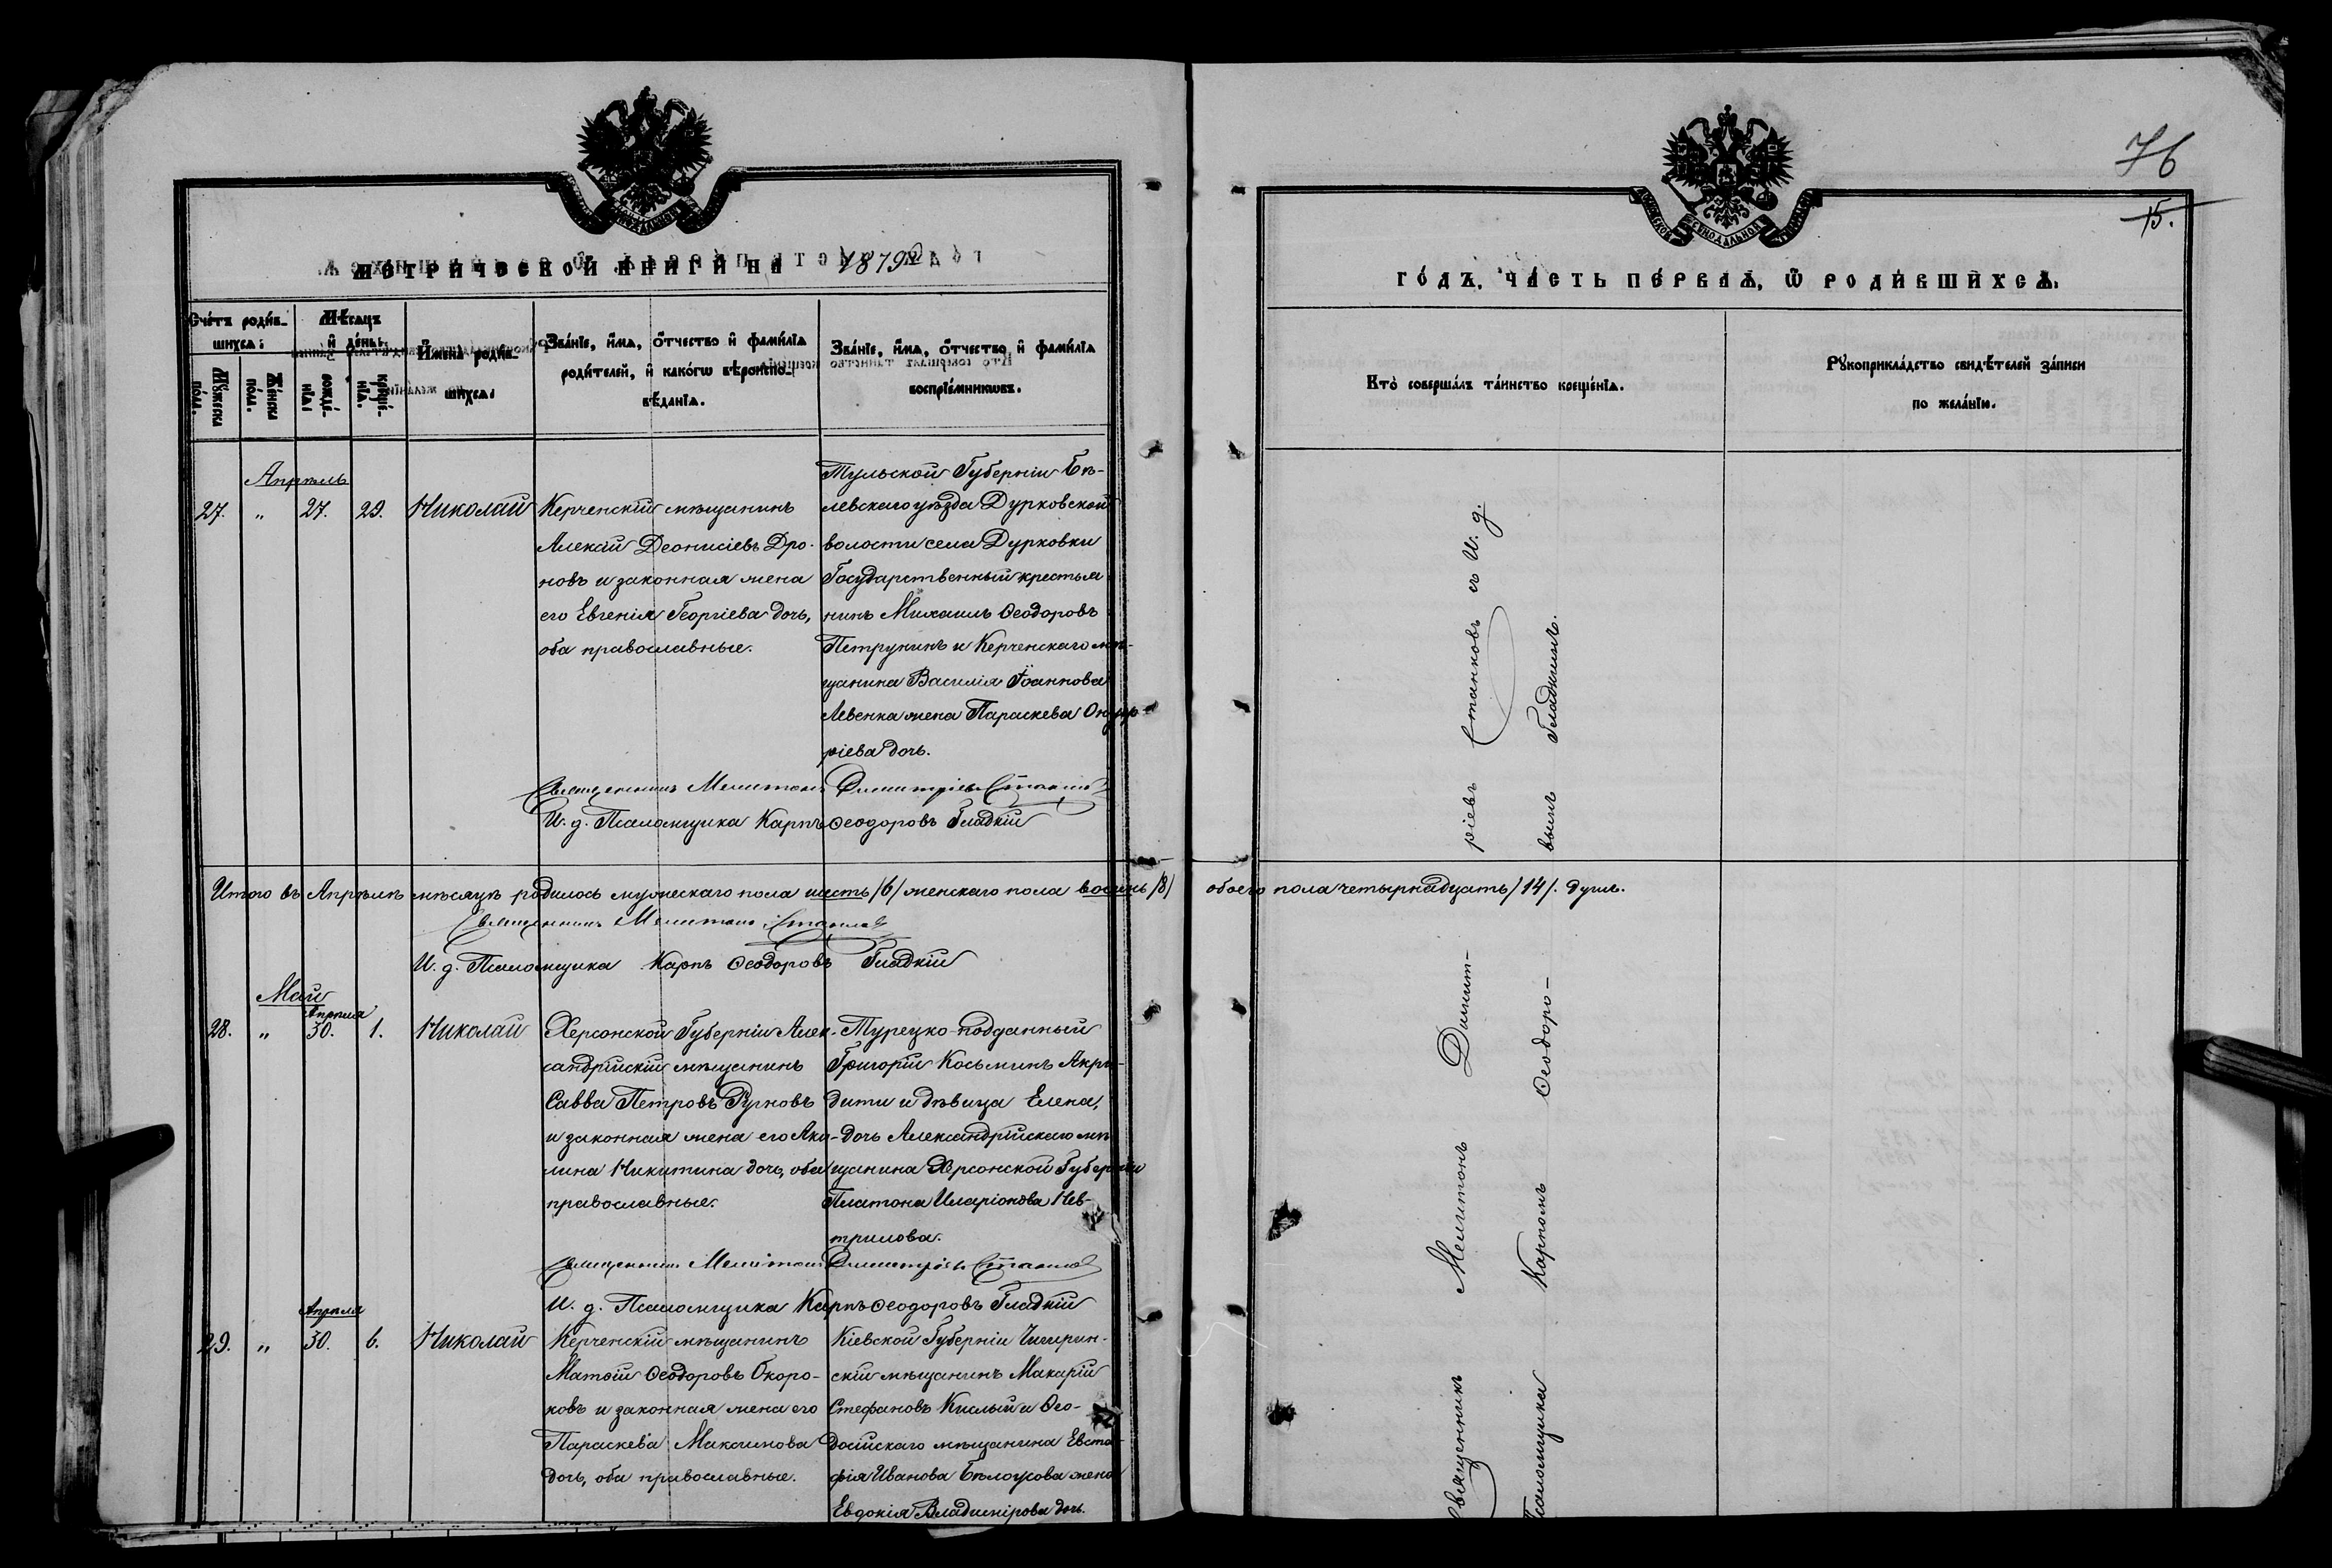 76
15.
МЕТРИЧЕСКОЙ КНИГИ НА 1879й
ГОДЪ, ЧАСТЬ ПЕРВАЯ, Ѿ РОДИВШИХСЯ.
Счетъ родив-
шихся:
Мѣсяцъ
и день:
Мужеска
пола.
Женска
пола.
рожде-
нія:
креще-
нія.
Имена родив-
шихся:
Званіе, имя, отчество и фамилія
родителей, и какогѡ вѣроиспо-
вѣданія.
Званіе, имя, отчество и фамилія
воспріемниковъ.
Кто совершалъ таинство крещенія.
Рукоприкладство свидѣтелей записи
по желанію.
Апрѣль
27. „ 27. 29. Николай
Керченскій мѣщанинъ
Алексій Деонисіевъ Дро-
новъ и законная жена
его Евгенія Георгіева дочь,
оба православные.
Тульской Губерніи Бѣ-
левскаго уѣзда Дурковской
волости села Дурковки
Государственный крестья
нинъ Михаилъ Ѳеодоровъ
Петрунинъ и Керченскаго мѣ-
щанина Василія Іоаннова
Левенка жена Параскева Онуф-
ріева дочь.
Священникъ Мелитонъ Димитріевъ Станковъ
И. д. Псаломщика Карпъ Ѳеодоровъ Гладкій
Итого въ Апрѣлѣ мѣсяцѣ родилось мужескаго пола шесть /6/ женскаго пола восемь /8/ обоего пола четырнадцать /14/. душъ.
Священникъ Мелитонъ Станковъ
И. д. Псаломщика Карпъ Ѳеодоровъ Гладкій
Май
Апрѣля
28. „ 30. 1. Николай
Херсонской Губерніи Алек-
сандрійскій мѣщанинъ
Савва Петровъ
и законная жена его Аку-
лина Никитина дочь, оба
православные.
Турецко-подданный
Григорій Косьминъ Акри-
дити и дѣвица Елена,
дочь Александрійскаго мѣ
щанина Херсонской Губерніи
Платона Иларіонова Нев-
трилова.
Священникъ Мелитонъ Димитріевъ Станковъ
И. д. Псаломщика Карпъ Ѳеодоровъ Гладкій
Апрѣля
29. „ 30. 6. Николай
Керченскій мѣщанинъ
Матѳій Ѳеодоровъ Окоро-
ковъ и законная жена его
Параскева Максимова
дочь, оба православные.
Кіевской Губерніи Чигирин-
скій мѣщанинъ Макарій
Стефановъ Кислый и Ѳео-
досійскаго мѣщанина Евста-
фія Иванова Бѣлоусова жена
Евдокія Владимірова дочь.
Священникъ Мелитонъ Димит-
ріевъ Станковъ съ И. д.
Псаломщика Карпомъ Ѳеодоро-
вымъ Гладкимъ.